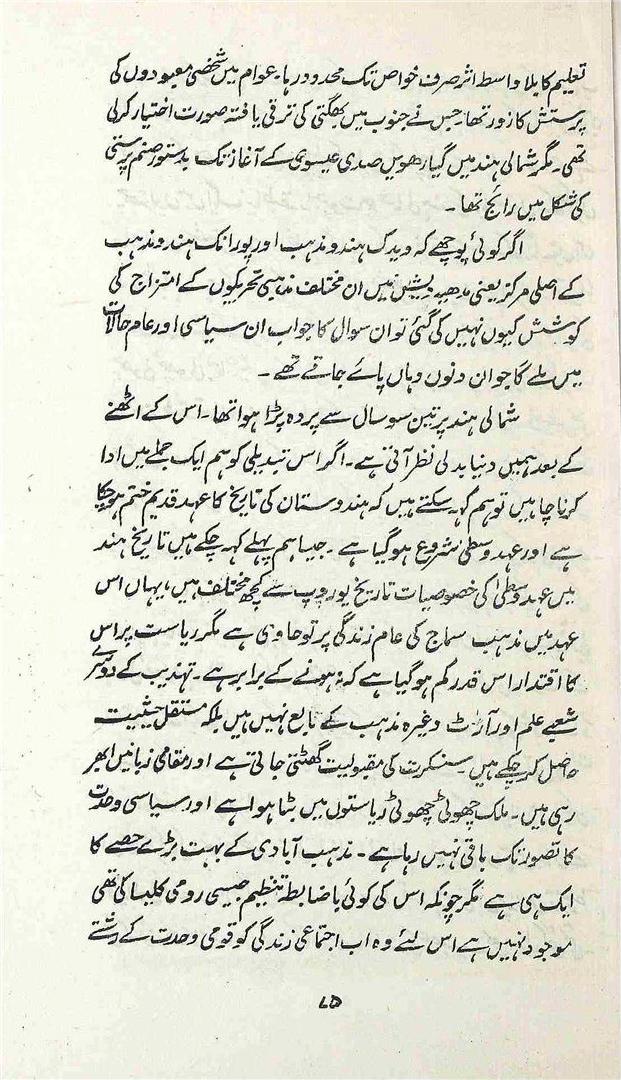 تعلیم کا بلا واسطہ اثر صرف خواص تک محدود رہا۔ عوام میں شخصی معبودوں کی
پرستش کا زور تھا، جس نے جنوب میں بھگتی کی ترقی یافتہ صورت اختیار کرلی
تھی۔ مگر شمالی ہند میں گیارھویں صدی عیسوی کے آغاز تک بدستور صنم پرستی
کی شکل میں رائج تھا۔
اگر کوئی پوچھے کہ ویدک ہندو مذہب اور پورانک ہندو مذہب
کے اصلی مرکز یعنی مدھیہ دیش میں ان مختلف مذہبی تحریکوں کے امتزاج کی
کوشش کیوں نہیں کی گئی تو ان سوال کا جواب ان سیاسی اور عام حالات
میں ملے گا جو ان دنوں وہاں پائے جاتے تھے۔
شمالی ہند پر تین سو سال سے پردہ پڑا ہوا تھا۔ اس کے اٹھنے
کے بعد ہمیں دنیا بدلی نظر آتی ہے۔ اگر اس تبدیلی کو ہم ایک جملے میں ادا
کرنا چاہیں تو ہم کہہ سکتے ہیں کہ ہندوستان کی تاریخ کا عہد قدیم ختم ہوچکا
ہے اور عہد وسطیٰ شروع ہوگیا ہے۔ جیسا ہم پہلے کہہ چکے ہیں تاریخ ہند
میں عہد وسطیٰ کی خصوصیات تاریخ یوروپ سے کچھ مختلف ہیں، یہاں اس
عہد میں مذہب سماج کی عام زندگی پر تو حاوی ہے مگر ریاست پر اس
کا اقتدار اس قدر کم ہوگیا ہے کہ نہ ہونے کے برابر ہے۔ تہذیب کے دوسرے
شعبے علم اور آرٹ وغیرہ مذہب کے تابع نہیں ہیں بلکہ مستقل حیثیت
حاصل کر چکے ہیں۔ سنسکرت کی مقبولیت گھٹتی جاتی ہے اور مقامی زبانیں ابھر
رہی ہیں۔ ملک چھوٹی چھوٹی ریاستوں میں بٹا ہوا ہے اور سیاسی وحدت
کا تصور تک باقی نہیں رہا ہے۔ مذہب آبادی کے بہت بڑے حصے کا
ایک ہی ہے مگر چونکہ اس کی کوئی باضابطہ تنظیم جیسی رومی کلیسا کی تھی
موجود نہیں ہے اس لئے وہ اب اجتماعی زندگی کو قومی وحدت کے رشتے
۷۵